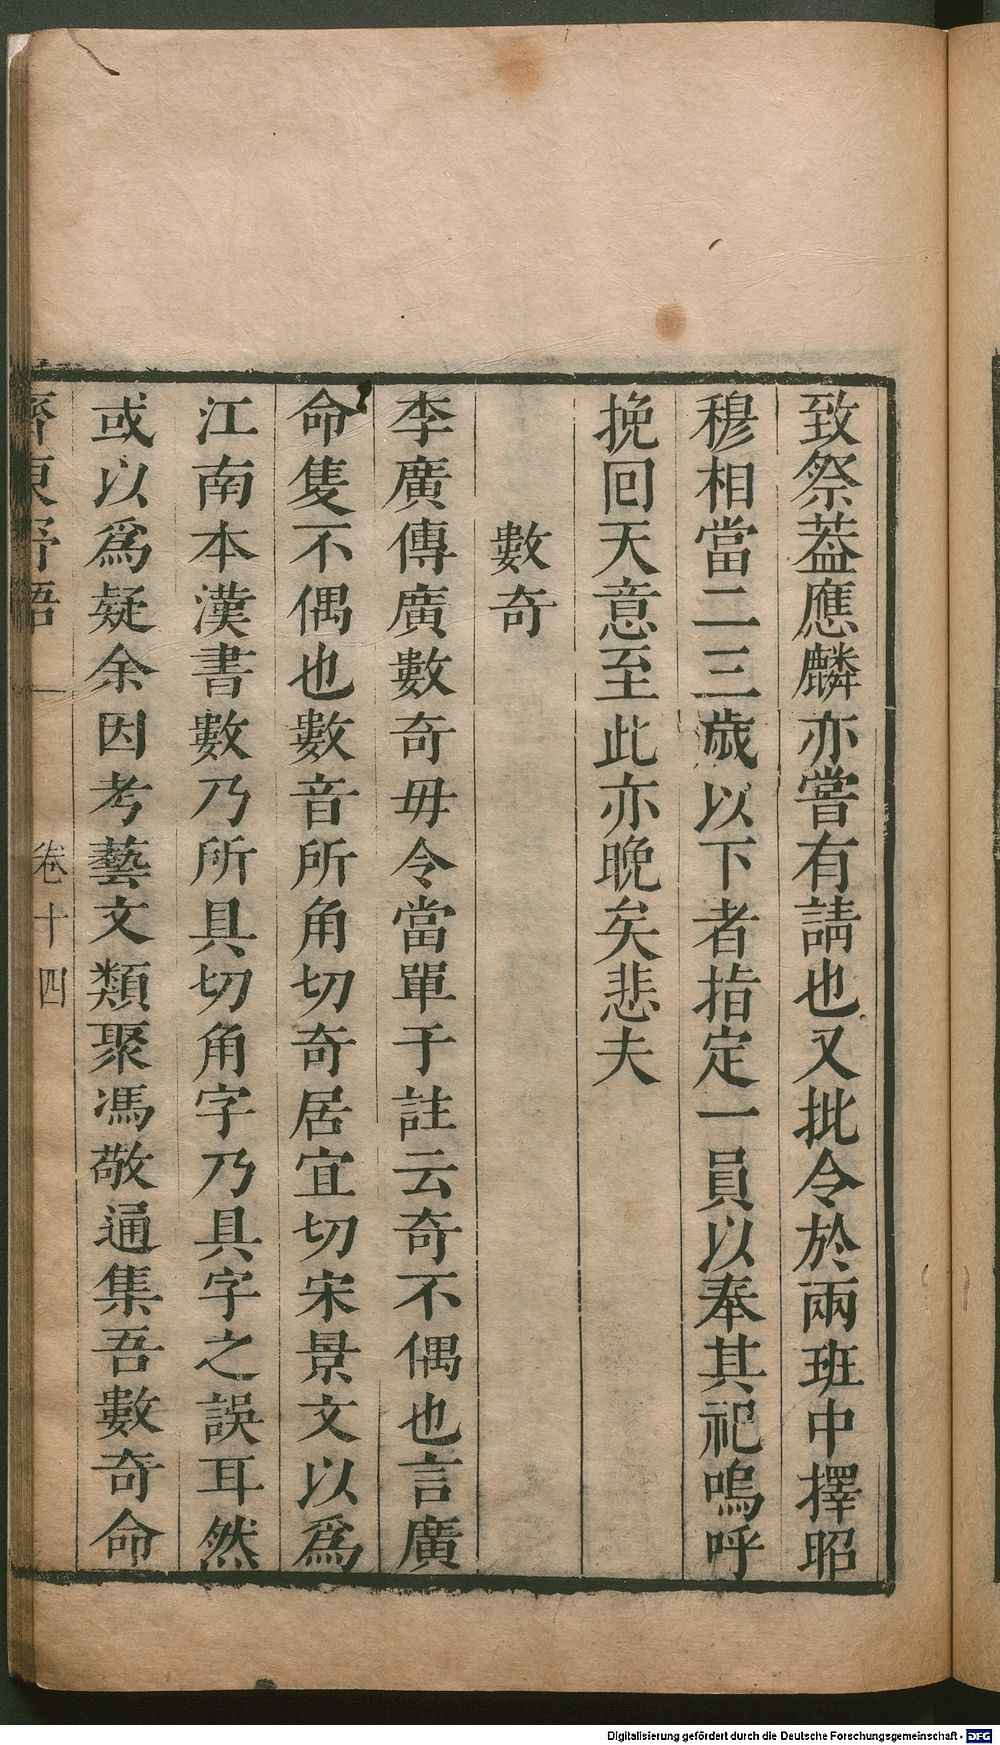 致祭葢應麟亦嘗有請也又批令於兩班中擇昭
穆相當二三歲以下者指定一員以奉其祀嗚呼
挽回天意至此亦晚矣悲夫
數奇
李廣傳廣數奇毋令當單于註云奇不偶也言廣
命隻不偶也數音所角切奇居宜切宋景文以爲
江南本漢書數乃所具切角字乃具字之誤耳然
或以爲疑余因考藝文類聚馮敬通集吾數奇命
齊東野語 卷十四
Digitalisierung gefördert durch die Deutsche Forschungsgemeinschaft - DFG